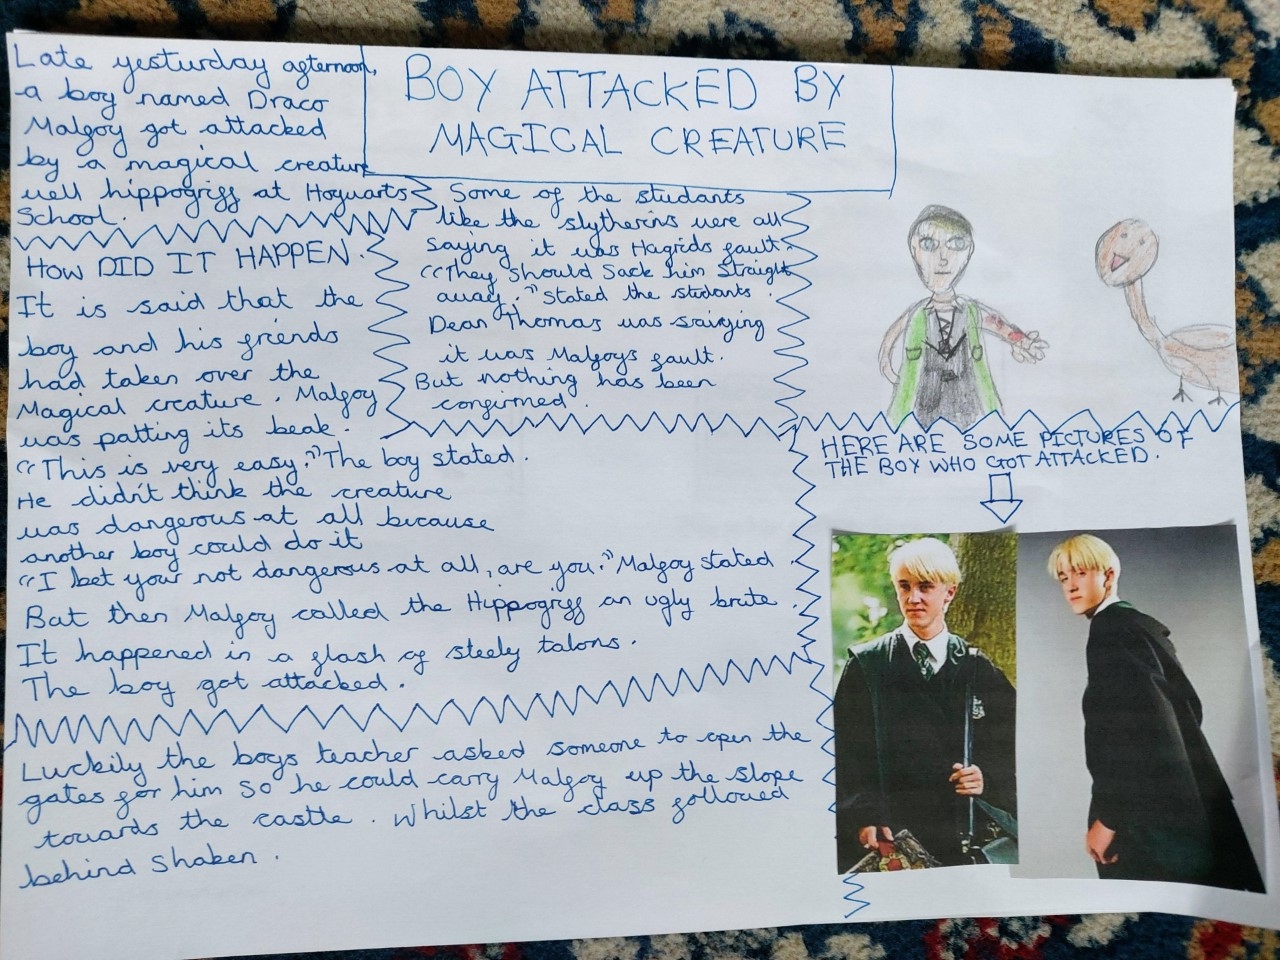 BOY ATTACKED BY
MAGICAL CREATURE
Late yesturday afternoon,
a boy named Draco
Malfoy got attacked
by a magical creature
well hippogriff at Hogwarts
School.
HOW DID IT HAPPEN.
It is said that the
boy and his friends
had taken over the
Magical creature. Malfoy
was patting its beak.
“This is very easy.” The boy stated.
He didn't think the creature
was dangerous at all because
another boy could do it
“I bet your not dangerous at all, are you.” Malfoy stated
But then Malfoy called the Hippogriff an ugly brute.
It happened in a flash of steely talons.
The boy got attacked.
Some of the studants
like the slytherins were all
saying it was Hagrids fault.
“They should Sack him Straight
away.” Stated the students.
Dean Thomas was sairying
it was Malfoys fault.
But nothing has been
confirmed.
HERE ARE SOME PICTURES OF
THE BOY WHO GOT ATTACKED.
Luckily the boys teacher asked someone to open the
gates for him so he could carry Malfoy up the slope
towards the castle. Whilst the class followed
behind shaken.